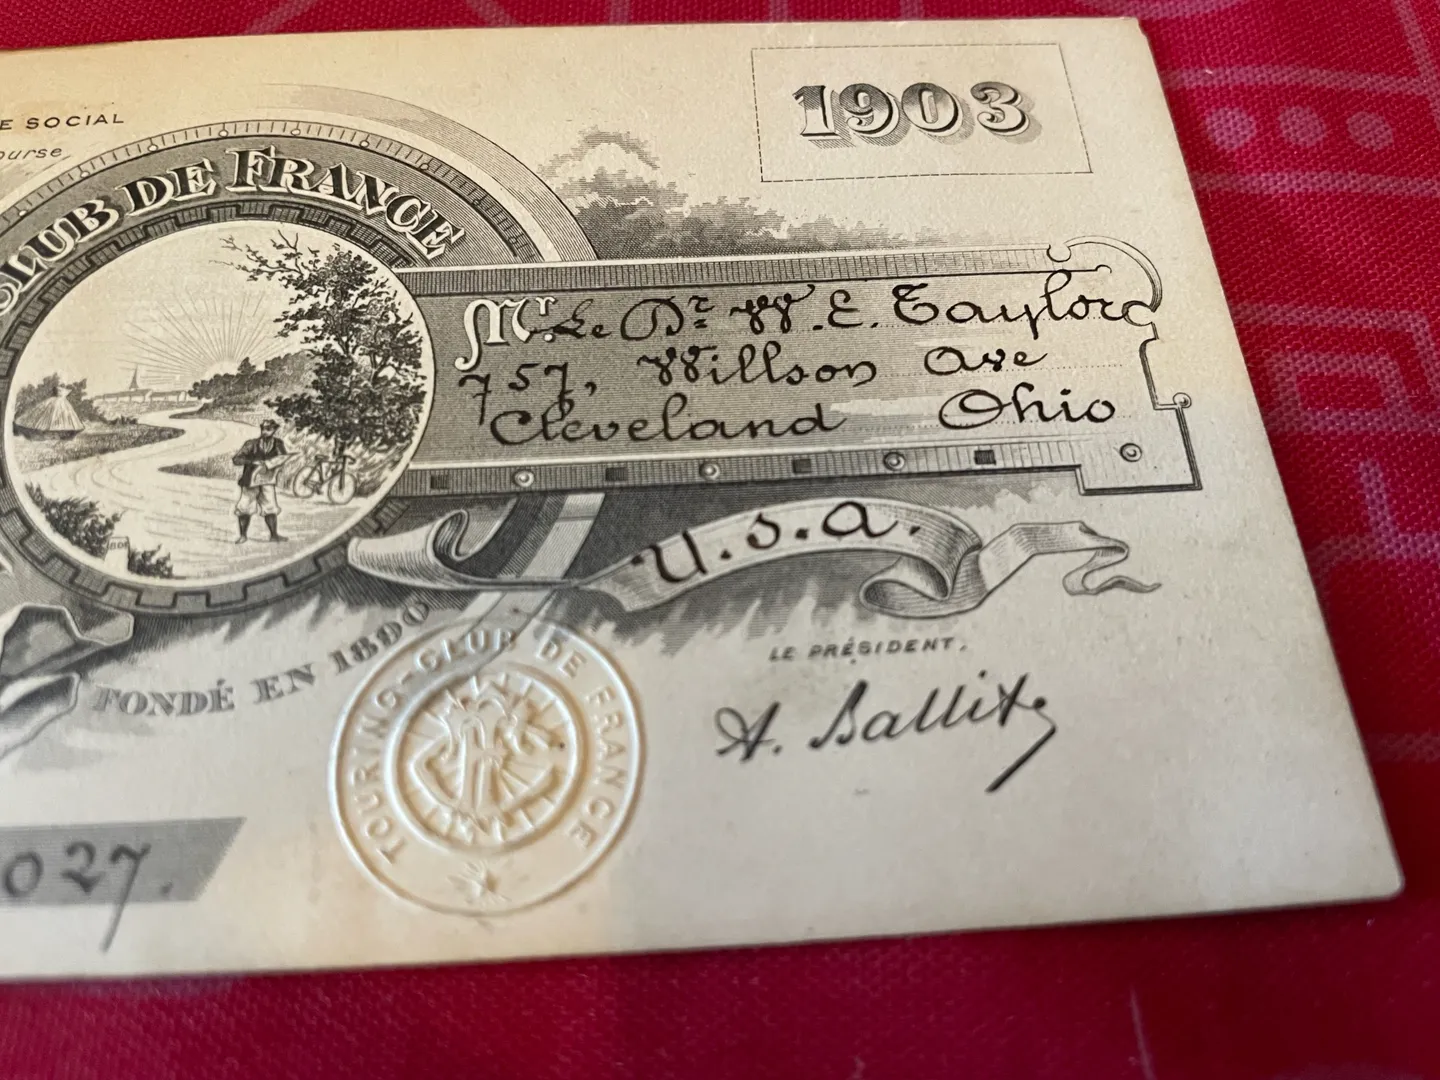 1903
E SOCIAL
ourse,
CLUB DE FRANCE
Mr. Le Dr W. E. Taylor
757, Willson Ave
Cleveland Ohio
U.S.A.
FONDÉ EN 1890
TOURING-CLUB DE FRANCE
LE PRÉSIDENT.
A. Ballif
027.